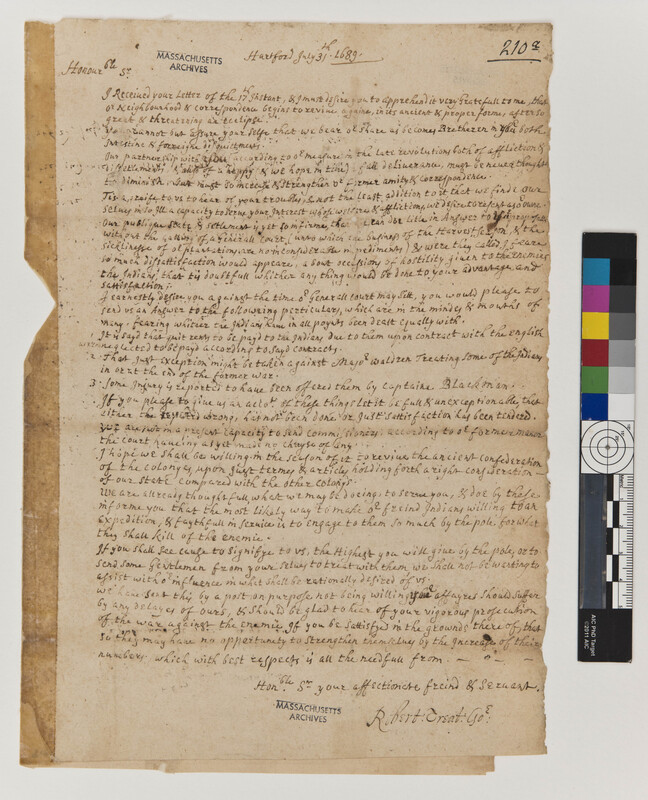 MASSACHUSETTS
ARCHIVES
Hartford July 31th - 1689 -
210a
Honourble Sr.
I Received your Letter of the 17th Instant, & I must desire you to apprehend it very gratefull to me, that
or Neighbourhood & correspondence begins to revive againe, in its ancient & proper forme, after so
great & threatning an ecclipse.
You cannot but assure your selfe that we bear or Share as becomes Bretheren in your both
Intestine & forreigne disquietments.
Our partnership with you according to or measure in the late revolutions both of affliction &
& out of a happy & we hope in time a full deliverance, must be never thought
to diminish, but must so increase & strengthen or former amity & correspondence.
Tis a griefe to us to hear of your troubles, & not the least addition to it that we finde our
selves in so Ill a capacity to serve your Interest
Our publique State & settlement is yet so infirme that
without the calling of a Generall court, (unto which the business of the Harvest season, & the
sickliness of or plantations are no inconsiderable impediments) & were they called, I feare
so much dissattisfaction would appeare, about occasions of hostility given to the enemies
the Indians, that tis doubtfull whither any thing would be done to your advantage and
sattisfaction:
I earnestly desire you against the time or Generall court may sitt, you would please to
send us an Answer to the following perticulars, which are in the mindes & mouths of
many. fearing whither the Indians have in all poynts been dealt equally with.
It is said that quit rents to be payd to the Indians due to them upon contract with the English
were neglected to be payd according to sayd contracts.
2 - That Just exception might be taken against Major Waldren Treating some of the Indians
in or at the end of the former war.
3 - Some Injury is reported to have been offered them by captaine Blackman.
If you please to give us an accot. of these things let it be full & unexceptionable, that
either the wrong, has not been done or Just sattisfaction has been tendred.
yet are not in a present capacity to send commissionrs. according to or former manner
the court haveing as yet made no choyse of any.
I hope we shall be willing in the season of it to revive the ancient confederation
of the colonyes, upon Just termes & articles holding forth a right consideration
of our State compared with the other colonys.
We are allready thoughtfull what we may be doeing to serve you, & doe by these
informe you that the most likely way to make or freind Indians willing to an
Expedition, & faithfull in service is to engage to them so much by the pole for what
they shall kill of the enemie.
If you shall see cause to signifye to us, the Highest you will give by the pole, or to
send some Gentlemen from your selves to treat with them we shall not be wanting to
assist with or influence in what shall be rationally desired of us.
We have sent this by a post on purpose not being willing your affayres should suffer
by any delayes of ours, & should be glad to hear of your vigorous prosecution
of the war against the enemie If you be sattisfyed in the grownds there of, that
so they may have no oppertunity to strengthen themselves by the Increase of their
numbers. which with best respects is all the needfull from. -
Honble Sr your affectionate freind & Servant.
Robert Treat: Gor:
MASSACHUSETTS
ARCHIVES
AIC PhD Target
©2011 AIC